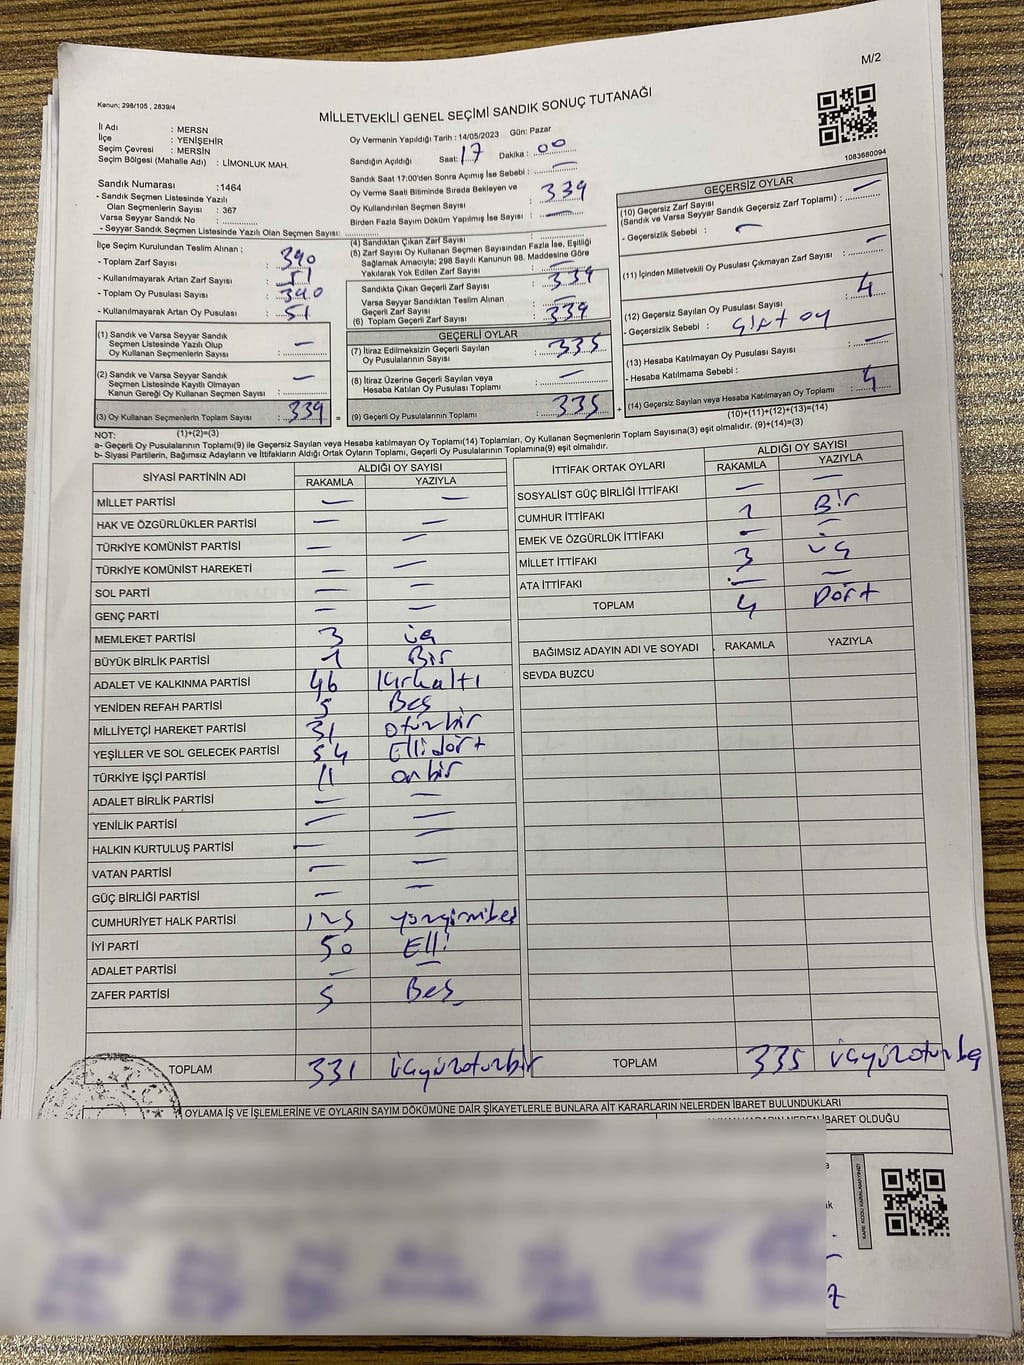 M/2
Kanun; 298/105 , 2839/4
MİLLETVEKİLİ GENEL SEÇİMİ SANDIK SONUÇ TUTANAĞI
1083660094
İl Adı : MERSN
İlçe : YENİŞEHİR
Seçim Çevresi : MERSİN
Seçim Bölgesi (Mahalle Adı) : LİMONLUK MAH.
Sandık Numarası :1464
- Sandık Seçmen Listesinde Yazılı
Olan Seçmenlerin Sayısı : 367
Varsa Seyyar Sandık No : ............
- Seyyar Sandık Seçmen Listesinde Yazılı Olan Seçmen Sayısı: ............
Oy Vermenin Yapıldığı Tarih : 14/05/2023 Gün: Pazar
Sandığın Açıldığı Saat: 17 Dakika : 00
Sandık Saat 17:00'den Sonra Açımış İse Sebebi : —
Oy Verme Saati Bitiminde Sırada Bekleyen ve
Oy Kullandırılan Seçmen Sayısı : 339
Birden Fazla Sayım Döküm Yapılmış İse Sayısı : —
İlçe Seçim Kurulundan Teslim Alınan ;
- Toplam Zarf Sayısı : 390
- Kullanılmayarak Artan Zarf Sayısı : 51
- Toplam Oy Pusulası Sayısı : 390
- Kullanılmayarak Artan Oy Pusulası : 51
(1) Sandık ve Varsa Seyyar Sandık
Seçmen Listesinde Yazılı Olup
Oy Kullanan Seçmenlerin Sayısı : —
(2) Sandık ve Varsa Seyyar Sandık
Seçmen Listesinde Kayıtlı Olmayan
Kanun Gereği Oy Kullanan Seçmen Sayısı : —
(3) Oy Kullanan Seçmenlerin Toplam Sayısı : 339 =
(1)+(2)=(3)
(4) Sandıktan Çıkan Zarf Sayısı : ............
(5) Zarf Sayısı Oy Kullanan Seçmen Sayısından Fazla İse, Eşitliği
Sağlamak Amacıyla; 298 Sayılı Kanunun 98. Maddesine Göre
Yakılarak Yok Edilen Zarf Sayısı : —
Sandıkta Çıkan Geçerli Zarf Sayısı : 339
Varsa Seyyar Sandıktan Teslim Alınan
Geçerli Zarf Sayısı : —
(6) Toplam Geçerli Zarf Sayısı : 339
GEÇERLİ OYLAR
(7) İtiraz Edilmeksizin Geçerli Sayılan
Oy Pusulalarının Sayısı : 335
(8) İtiraz Üzerine Geçerli Sayılan veya
Hesaba Katılan Oy Pusulası Toplamı : —
(9) Geçerli Oy Pusulalarının Toplamı : 335 +
GEÇERSİZ OYLAR
(10) Geçersiz Zarf Sayısı
(Sandık ve Varsa Seyyar Sandık Geçersiz Zarf Toplamı) : —
- Geçersizlik Sebebi : —
(11) İçinden Milletvekili Oy Pusulası Çıkmayan Zarf Sayısı : —
(12) Geçersiz Sayılan Oy Pusulası Sayısı : 4
- Geçersizlik Sebebi : Çift oy
(13) Hesaba Katılmayan Oy Pusulası Sayısı : —
- Hesaba Katılmama Sebebi :
(14) Geçersiz Sayılan veya Hesaba Katılmayan Oy Toplamı : 4
(10)+(11)+(12)+(13)=(14)
NOT:
a- Geçerli Oy Pusulalarının Toplamı(9) ile Geçersiz Sayılan veya Hesaba Katılmayan Oy Toplamı(14) Toplamları, Oy Kullanan Seçmenlerin Toplam Sayısına(3) eşit olmalıdır. (9)+(14)=(3)
b- Siyasi Partilerin, Bağımsız Adayların ve İttifakların Aldığı Ortak Oyların Toplamı, Geçerli Oy Pusulalarının Toplamına(9) eşit olmalıdır.
SİYASİ PARTİNİN ADI ALDIĞI OY SAYISI
RAKAMLA YAZIYLA
MİLLET PARTİSİ — —
HAK VE ÖZGÜRLÜKLER PARTİSİ — —
TÜRKİYE KOMÜNİST PARTİSİ — —
TÜRKİYE KOMÜNİST HAREKETİ — —
SOL PARTİ — —
GENÇ PARTİ — —
MEMLEKET PARTİSİ 3 üç
BÜYÜK BİRLİK PARTİSİ 1 Bir
ADALET VE KALKINMA PARTİSİ 46 Kırkaltı
YENİDEN REFAH PARTİSİ 5 Beş
MİLLİYETÇİ HAREKET PARTİSİ 31 otuzbir
YEŞİLLER VE SOL GELECEK PARTİSİ 54 Ellidört
TÜRKİYE İŞÇİ PARTİSİ 11 onbir
ADALET BİRLİK PARTİSİ — —
YENİLİK PARTİSİ — —
HALKIN KURTULUŞ PARTİSİ — —
VATAN PARTİSİ — —
GÜÇ BİRLİĞİ PARTİSİ — —
CUMHURİYET HALK PARTİSİ 125 yüzyirmibeş
İYİ PARTİ 50 Elli
ADALET PARTİSİ — —
ZAFER PARTİSİ 5 Beş
TOPLAM 331 üçyüzotuzbir
İTTİFAK ORTAK OYLARI ALDIĞI OY SAYISI
RAKAMLA YAZIYLA
SOSYALİST GÜÇ BİRLİĞİ İTTİFAKI — —
CUMHUR İTTİFAKI 1 Bir
EMEK VE ÖZGÜRLÜK İTTİFAKI — —
MİLLET İTTİFAKI 3 üç
ATA İTTİFAKI — —
TOPLAM 4 Dört
BAĞIMSIZ ADAYIN ADI VE SOYADI RAKAMLA YAZIYLA
SEVDA BUZCU
TOPLAM 335 üçyüzotuzbeş
OYLAMA İŞ VE İŞLEMLERİNE VE OYLARIN SAYIM DÖKÜMÜNE DAİR ŞİKAYETLERLE BUNLARA AİT KARARLARIN NELERDEN İBARET BULUNDUKLARI
KARARIN NEDEN İBARET OLDUĞU
KARE KODU KARALAMAYINIZ!